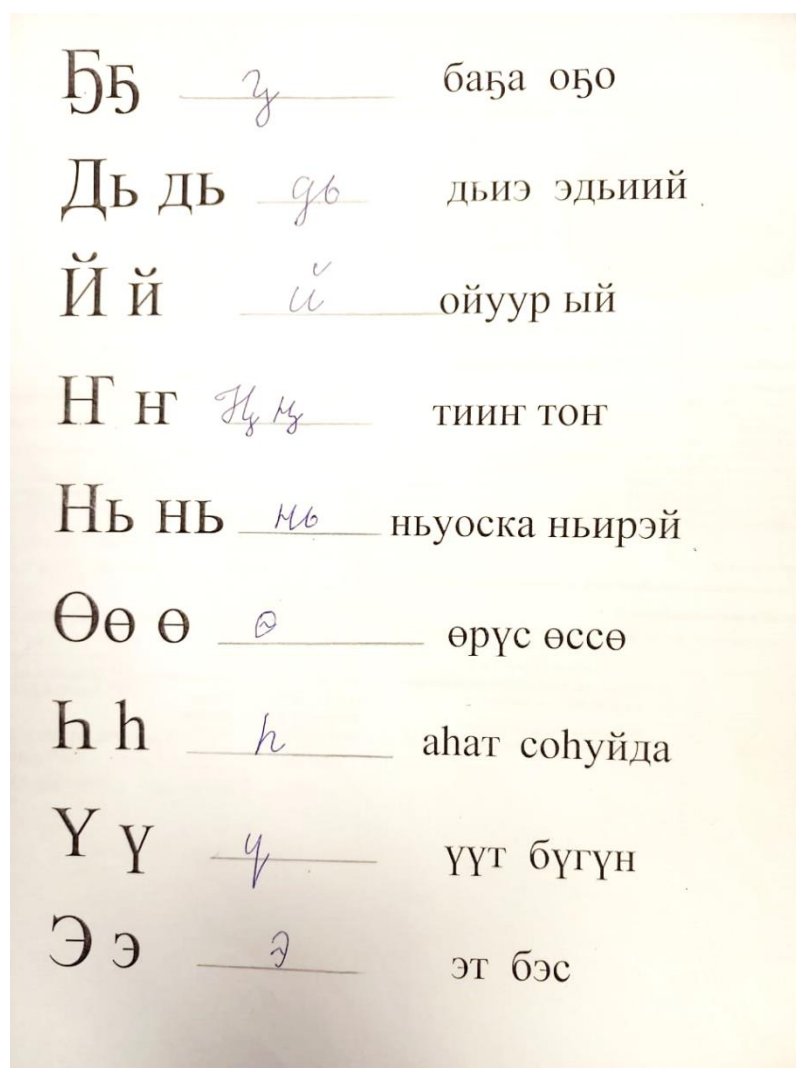 Ҕҕ ҕ баҕа оҕо
Дь дь дь дьиэ эдьиий
Й й й ойуур ый
Ҥ ҥ Ҥ ҥ тииҥ тоҥ
Нь нь нь ньуоска ньирэй
Өө ө ө өрүс өссө
Һ һ һ аһат соһуйда
Ү ү ү үүт бүгүн
Э э э эт бэс